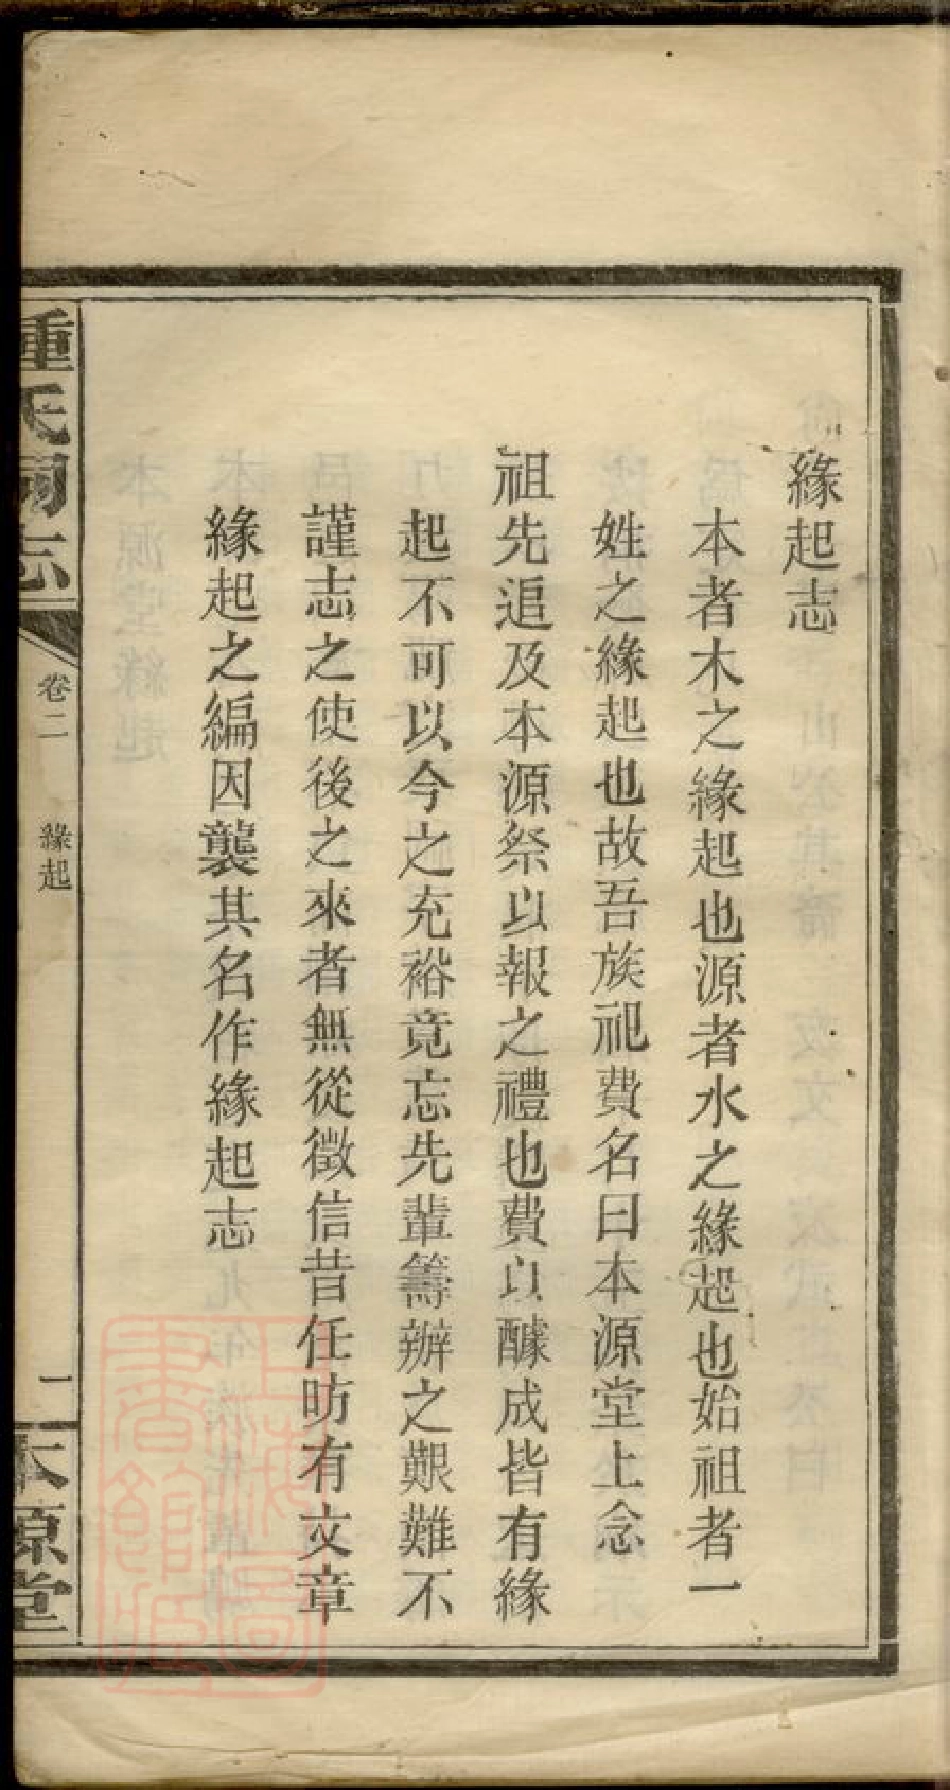 緣起志
本者木之緣起也源者水之緣起也始祖者一
姓之緣起也故吾族祀費名曰本源堂上念
祖先追及本源祭以報之禮也費以醵成皆有緣
起不可以今之充裕竟忘先輩籌辦之艱難不
謹志之使後之來者無從徵信昔任昉有文章
緣起之編因襲其名作緣起志
氏祠志
卷二
緣起
一
本源堂